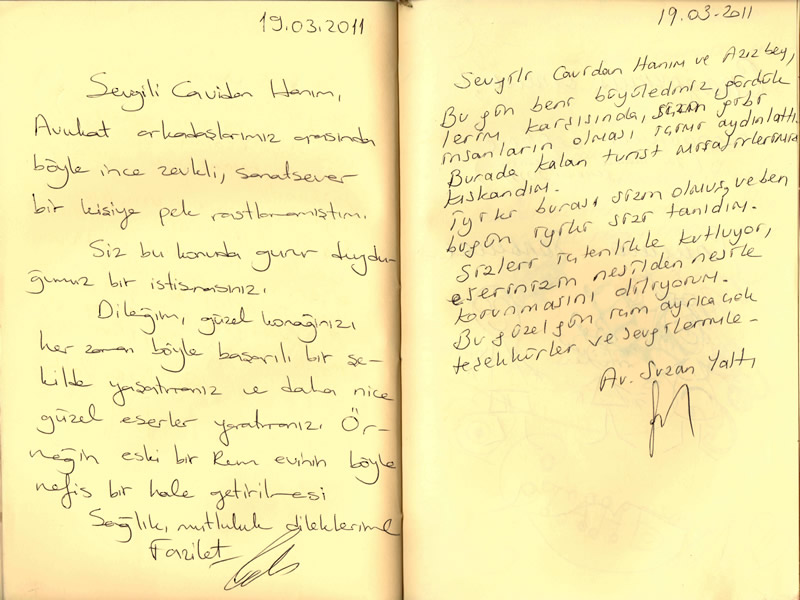 19.03.2011
Sevgili Cavidan Hanım,
Avukat arkadaşlarımız arasında
böyle ince zevkli, sanatsever
bir kişiye pek rastlamamıştım.
Siz bu konuda gurur duydu-
ğumuz bir istisnasınız.
Dileğim, güzel konağınızı
her zaman böyle başarılı bir şe-
kilde yaşatmanız ve daha nice
güzel eserler yaratmanız. Ör-
neğin eski bir Rum evinin böyle
nefis bir hale getirilmesi
Sağlık, mutluluk dileklerimle
Fazilet
19.03.2011
Sevgili Cavidan Hanım ve Aziz bey,
Bu gün beni büyülediniz, gördük
lerim karşısında, sizin gibi
insanların olması içimi aydınlattı.
Burada kalan turist misafirlerinizi
kıskandım.
İyiki burası sizin olmuş, ve ben
bugün iyiki sizi tanıdım.
Sizleri içtenlikle kutluyor,
eserinizin nesilden nesile
korunmasını diliyorum.
Bu güzel gün için ayrıca çok
teşekkürler ve sevgilerimle-
Av. Suzan Yaltı